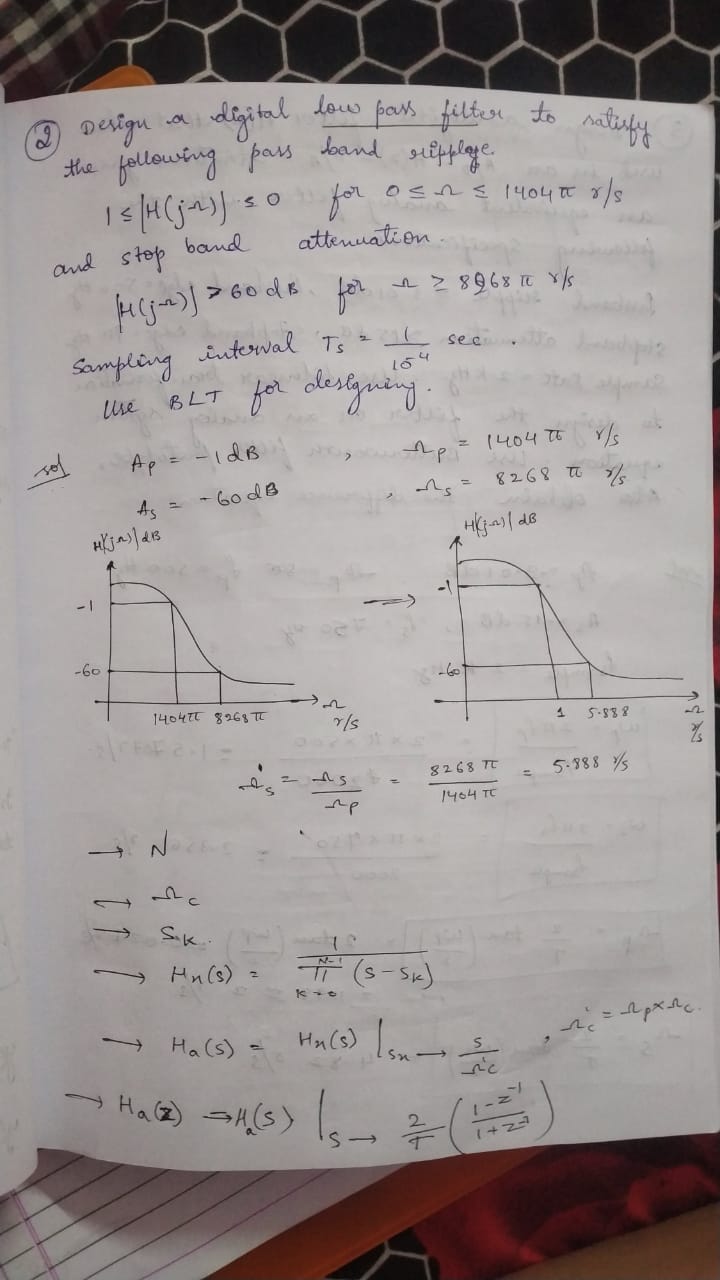 ② Design a digital low pass filter to satisfy
the following pass band ripplge.
1 ≤ |H(jΩ)| ≤ 0 for 0 ≤ Ω ≤ 1404π r/s
and stop band attenuation.
|H(jΩ)| > 60 dB for Ω ≥ 8268π r/s
Sampling interval Ts = 1/10⁴ sec.
Use BLT for designing.
sol Ap = -1dB , Ωp = 1404π r/s
As = -60dB , Ωs = 8268π r/s
H(jΩ)| dB
H(jΩ)| dB
-1
-60
1404π 8268π
Ω r/s
⇒
-1
-60
1 5.888
Ω r/s
Ω's = Ωs/Ωp = 8268π/1404π = 5.888 r/s
→ N
→ Ωc
→ Sk.
→ Hn(s) = 1/(N-1 π k=0 (s-sk))
→ Ha(s) = Hn(s) |sn → s/Ω'c , Ω'c = Ωp×Ωc.
→ Ha(z) ⇒ Ha(s) |s → 2/T ((1-z⁻¹)/(1+z⁻¹))